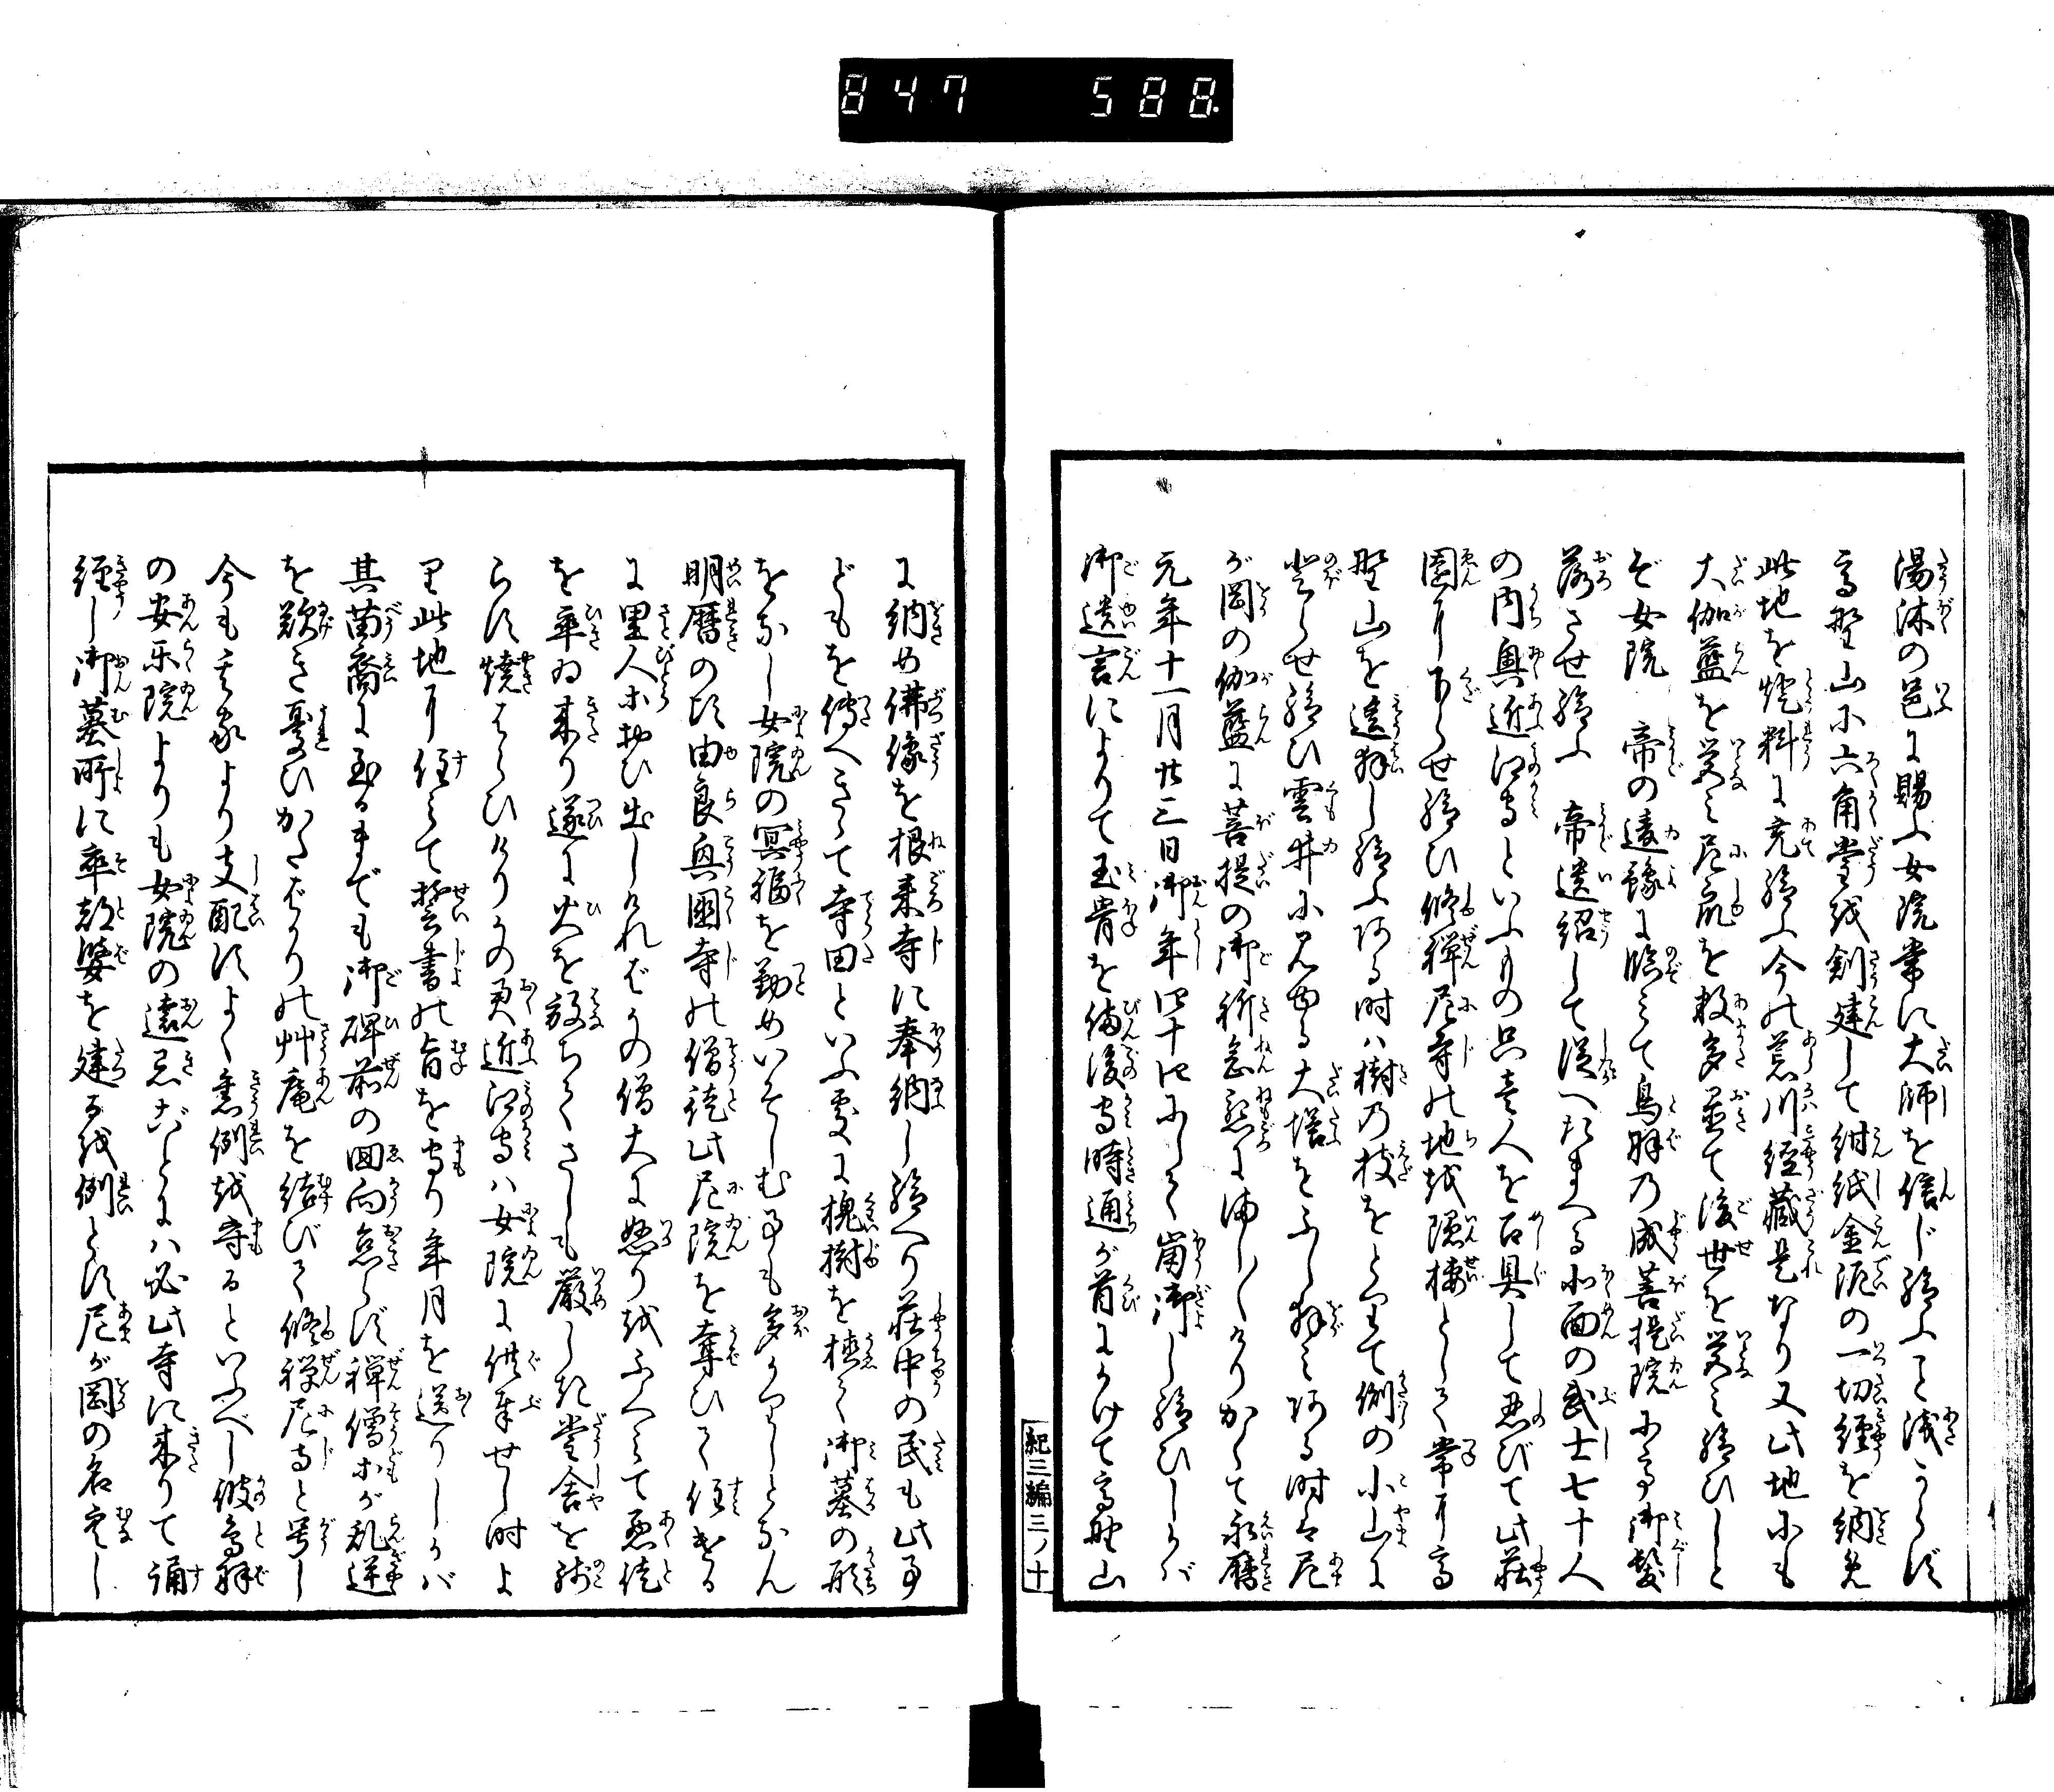 847 588
湯沐の邑に賜ふ女院常に大師を信じ給ふこと浅からず
高野山に六角堂を創建して紺紙金泥の一切経を納め
此地を燈料に充給ふ今の荒川経蔵是なり又此地にも
大伽藍を営み尼家を数多並て後世を営み給ひしと
ぞ女院 帝の違豫に臨みて鳥羽の成菩提院にて御髪
落させ給ふ 帝遺紹して従へたまへる北面の武士七十人
の内奥近江守といふもの只壱人を召具して忍びて此荘
園に下らせ給ひ修禅尼寺の地を隠棲としく常に高
野山を遥拝し給ふ阿る時ハ樹の枝をとりて側の小山に
登らせ給ひ雲井に見ゆる大塔をふし拝み阿る時は尼
が岡の伽藍に菩提の御祈念懇にましましけりかくて永暦
元年十一月廿三日御年四十四にして崩御し給ひしかバ
御遺言によりて玉骨を備後守時通が首にかけて高野山
紀三編三ノ十
に納め佛像を根来寺に奉納し給へり荘中の民も此事
どもを傳へきゝて寺田といふ處に槐樹を植て御墓の形
をなし女院の冥福を勤めいそしむものも多かりしとなん
明暦の頃由良興國寺の僧徒此尼院を奪ひて住ける
に里人等おひ出しけれバその僧大に怒りをふくみて悪徒
を率ゐ来り遂に火を放ちてさしも厳しき堂舎を残
らず焼はらひけりその頃近江守ハ女院に供奉せし時よ
り此地に住みて誓書の旨を守り年月を送りしかバ
其苗裔に至るまでも御碑前の回向怠らず禅僧等が乱逆
を歎き憂ひかたばかりの艸庵を結びて修禅尼寺と号し
今も其家より支配すよく舊例を守るといふべし彼鳥羽
の安楽院よりも女院の遠忌ごとにハ必此寺に来りて誦
経し御墓所に率都婆を建るを例とす尼が岡の名空し